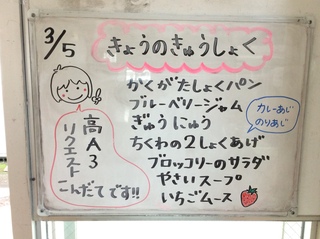 3/5
きょうのきゅうしょく
かくがたしょくパン
ブルーベリージャム
ぎゅうにゅう
ちくわの2しょくあげ
カレーあじ
のりあじ
ブロッコリーのサラダ
やさいスープ
いちごムース
高A3
リクエスト
こんだてです!!